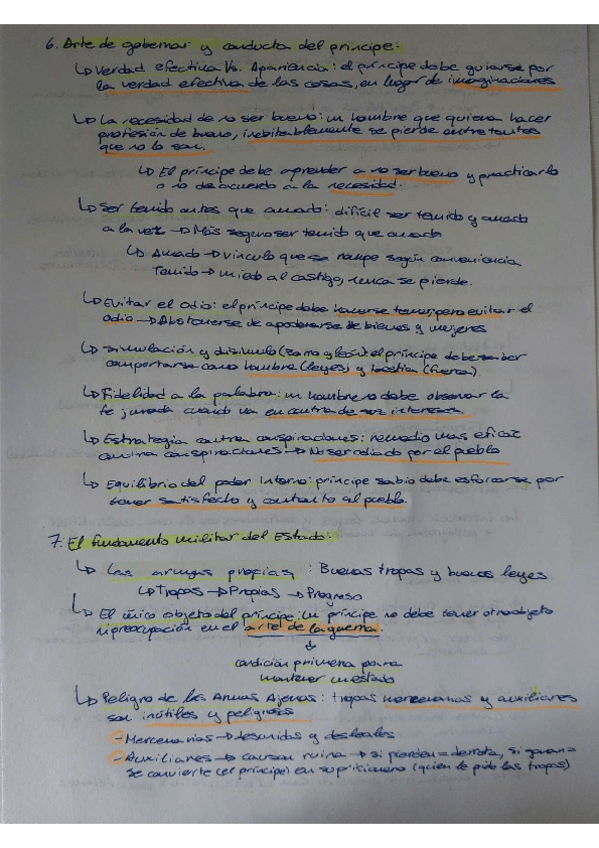 6. Arte de gobernar y conducta del príncipe:
↳ Verdad efectiva Vs. Apariencia: el príncipe debe guiarse por
la verdad efectiva de las cosas, en lugar de imaginaciones
↳ La necesidad de no ser bueno: un hombre que quiera hacer
profesión de bueno, inebitablemente se pierde entre tantos
que no lo son.
↳ El príncipe debe aprender a no ser bueno y practicarlo
o no de acuerdo a la necesidad.
↳ Ser temido antes que amado: difícil ser temido y amado
a la vez → Más seguro ser temido que amado
↳ Amado → vínculo que se rompe según conveniencia
Temido → miedo al castigo, nunca se pierde.
↳ Evitar el odio: el príncipe debe hacerse temer, pero evitar el
odio → Abstenerse de apoderarse de bienes y mujeres
↳ Simulación y disimulo (zorro y león): el príncipe debe saber
comportarse como hombre (leyes) y bestia (fuerza).
↳ Fidelidad a la palabra: un hombre no debe observar la
fe jurada cuando va en contra de sus intereses.
↳ Estrategia contra conspiraciones: remedio más eficaz
contra conspiraciones → No ser odiado por el pueblo
↳ Equilibrio del poder Interno: príncipe sabio debe esforzarse por
tener satisfecho y contento al pueblo.
7. El fundamento militar del Estado:
↳ Las armas propias: Buenas tropas y buenas leyes
↳ Tropas → Propias → Progreso
↳ El único objeto del príncipe: Un príncipe no debe tener otro objeto
ni preocupación en el arte de la guerra.
↓
condición primera para
mantener un estado
↳ Peligro de las Armas Ajenas: tropas mercenarias y auxiliares
son inútiles y peligrosas
- Mercenarias → desunidas y desleales
- Auxiliares → causan ruina → si pierden = derrota, si ganan =
se convierte (el príncipe) en su prisionero (quien le pidió las tropas)